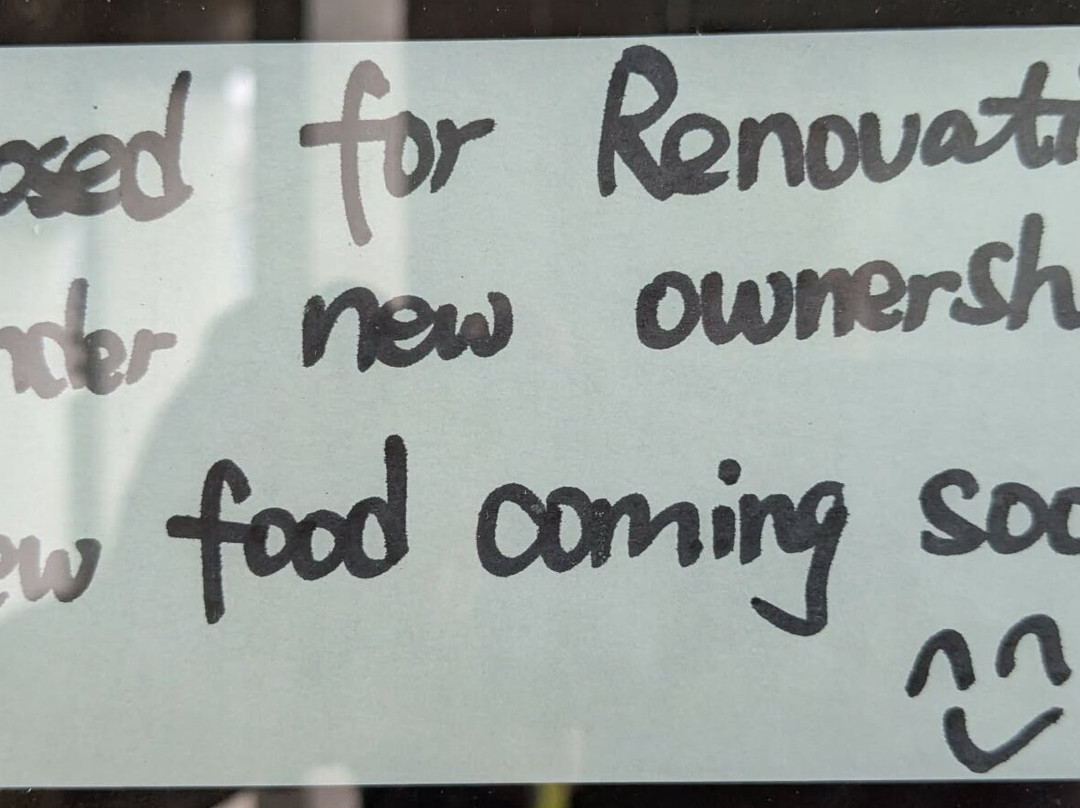 osed for Renovati
nder new ownersh
ew food coming soo